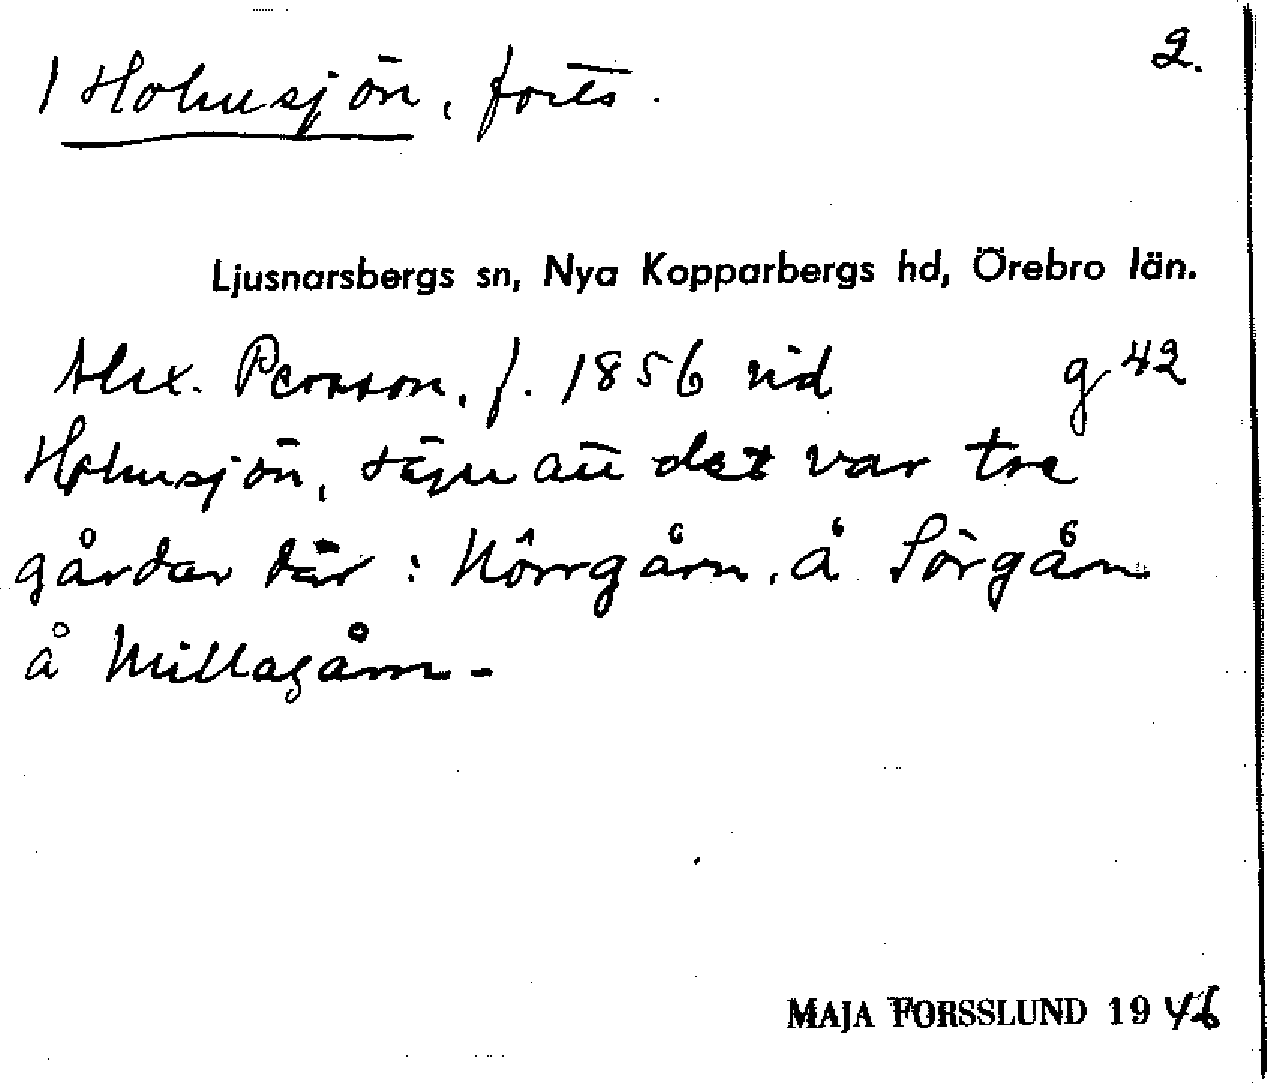 2.
1 Holmsjön, forts.
Ljusnarsbergs sn, Nya Kopparbergs hd, Örebro län.
Alex. Persson, f. 1856 vid g 42
Holmsjön, säger att det var tre
gårdar där: Nôrrgårn, å Sörgårn
å Millagårn -
MAJA FORSSLUND 1946